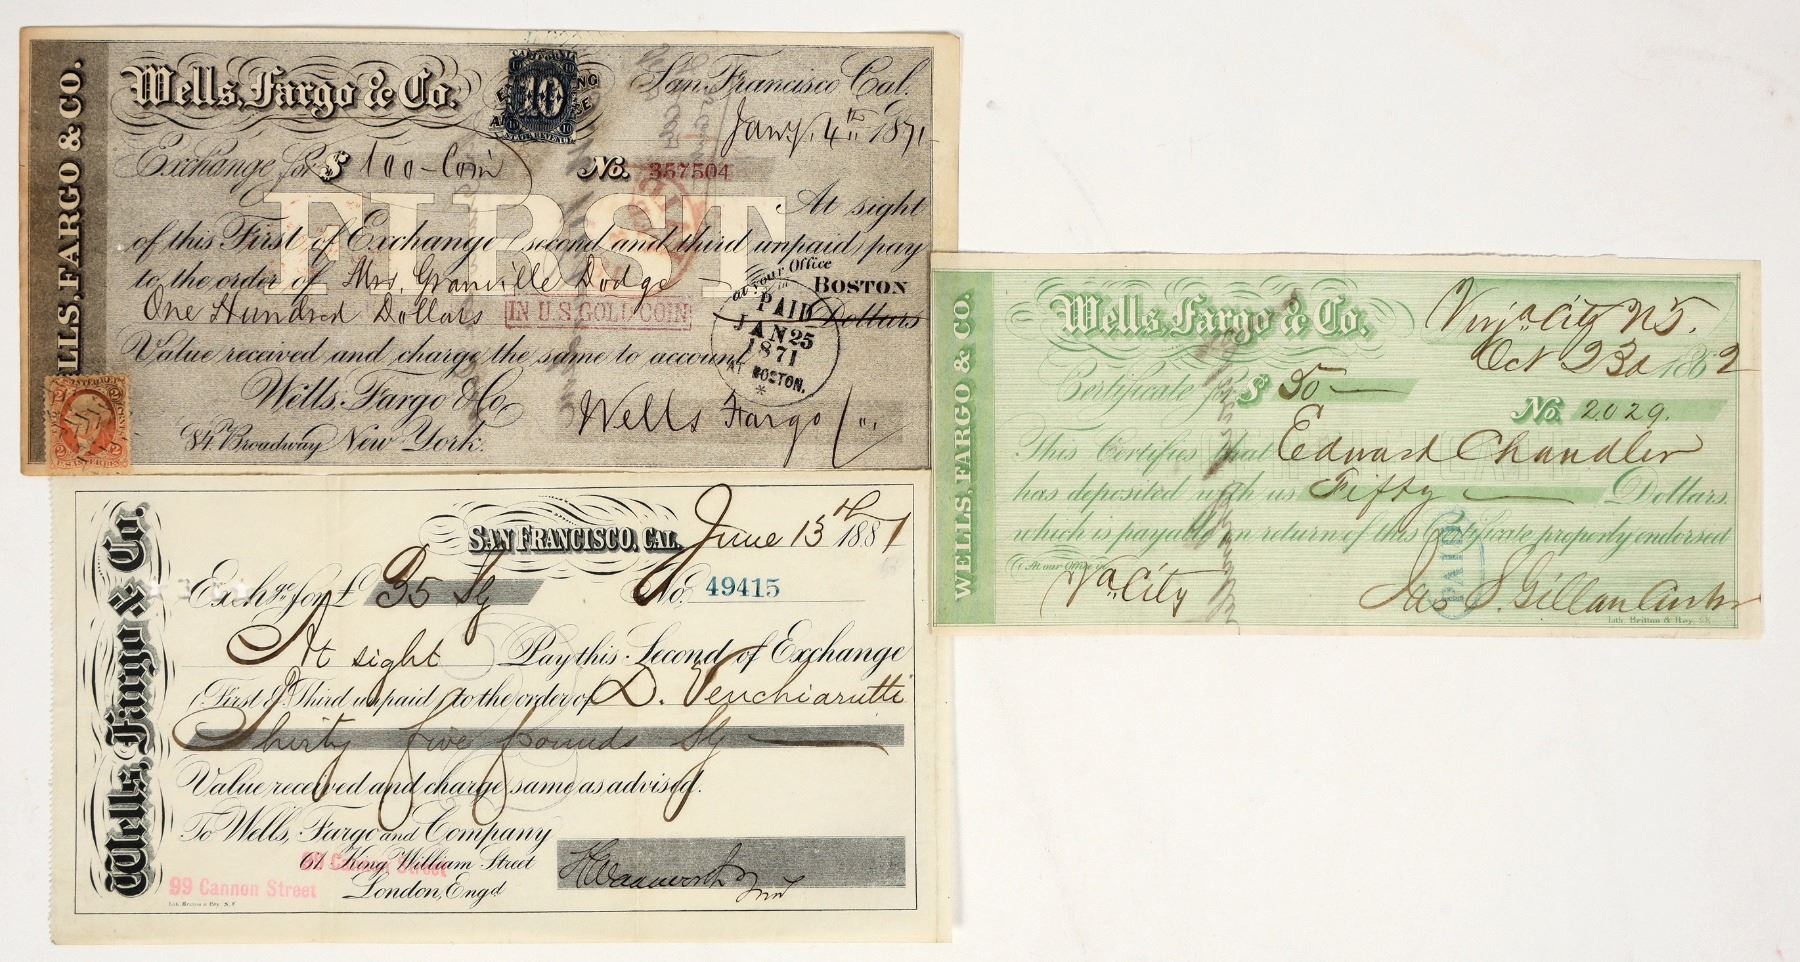 WELLS, FARGO & CO.
Wells, Fargo & Co.
10
San Francisco Cal.
Jany. 4th 1871
Exchange for $ 100 - Coin
No. 357504
FIRST
At sight
of this First of Exchange (second and third unpaid) pay
to the order of Mrs. Granville Dodge
at your Office in BOSTON
One Hundred Dollars
IN U.S. GOLD COIN
Dollars
PAID
JAN 25
1871
AT BOSTON.
Value received and charge the same to account
Wells, Fargo & Co
84 Broadway New York.
Wells Fargo Co.
2
U.S. INTER. REV.
2
Wells, Fargo & Co.
SAN FRANCISCO, CAL. June 15th 1887
Exchge for £ 35 Stg
No. 49415
At sight Pay this Second of Exchange
(First & Third unpaid) to the order of D. Venchiarutti
Thirty five pounds Stg
Value received and charge same as advised.
To Wells, Fargo and Company
67 King William Street
London, Engd
99 Cannon Street
Lith. Britton & Rey. S.F.
WELLS, FARGO & CO.
Wells, Fargo & Co.
Virga City N.T.
Oct 23d 1862
Certificate for $ 50 —
No. 2029.
This Certifies that Edward Chandler
has deposited with us Fifty — Dollars.
which is payable on return of this Certificate properly endorsed
(At our Office in
Va. City
PAID
Lith. Britton & Rey. S.F.